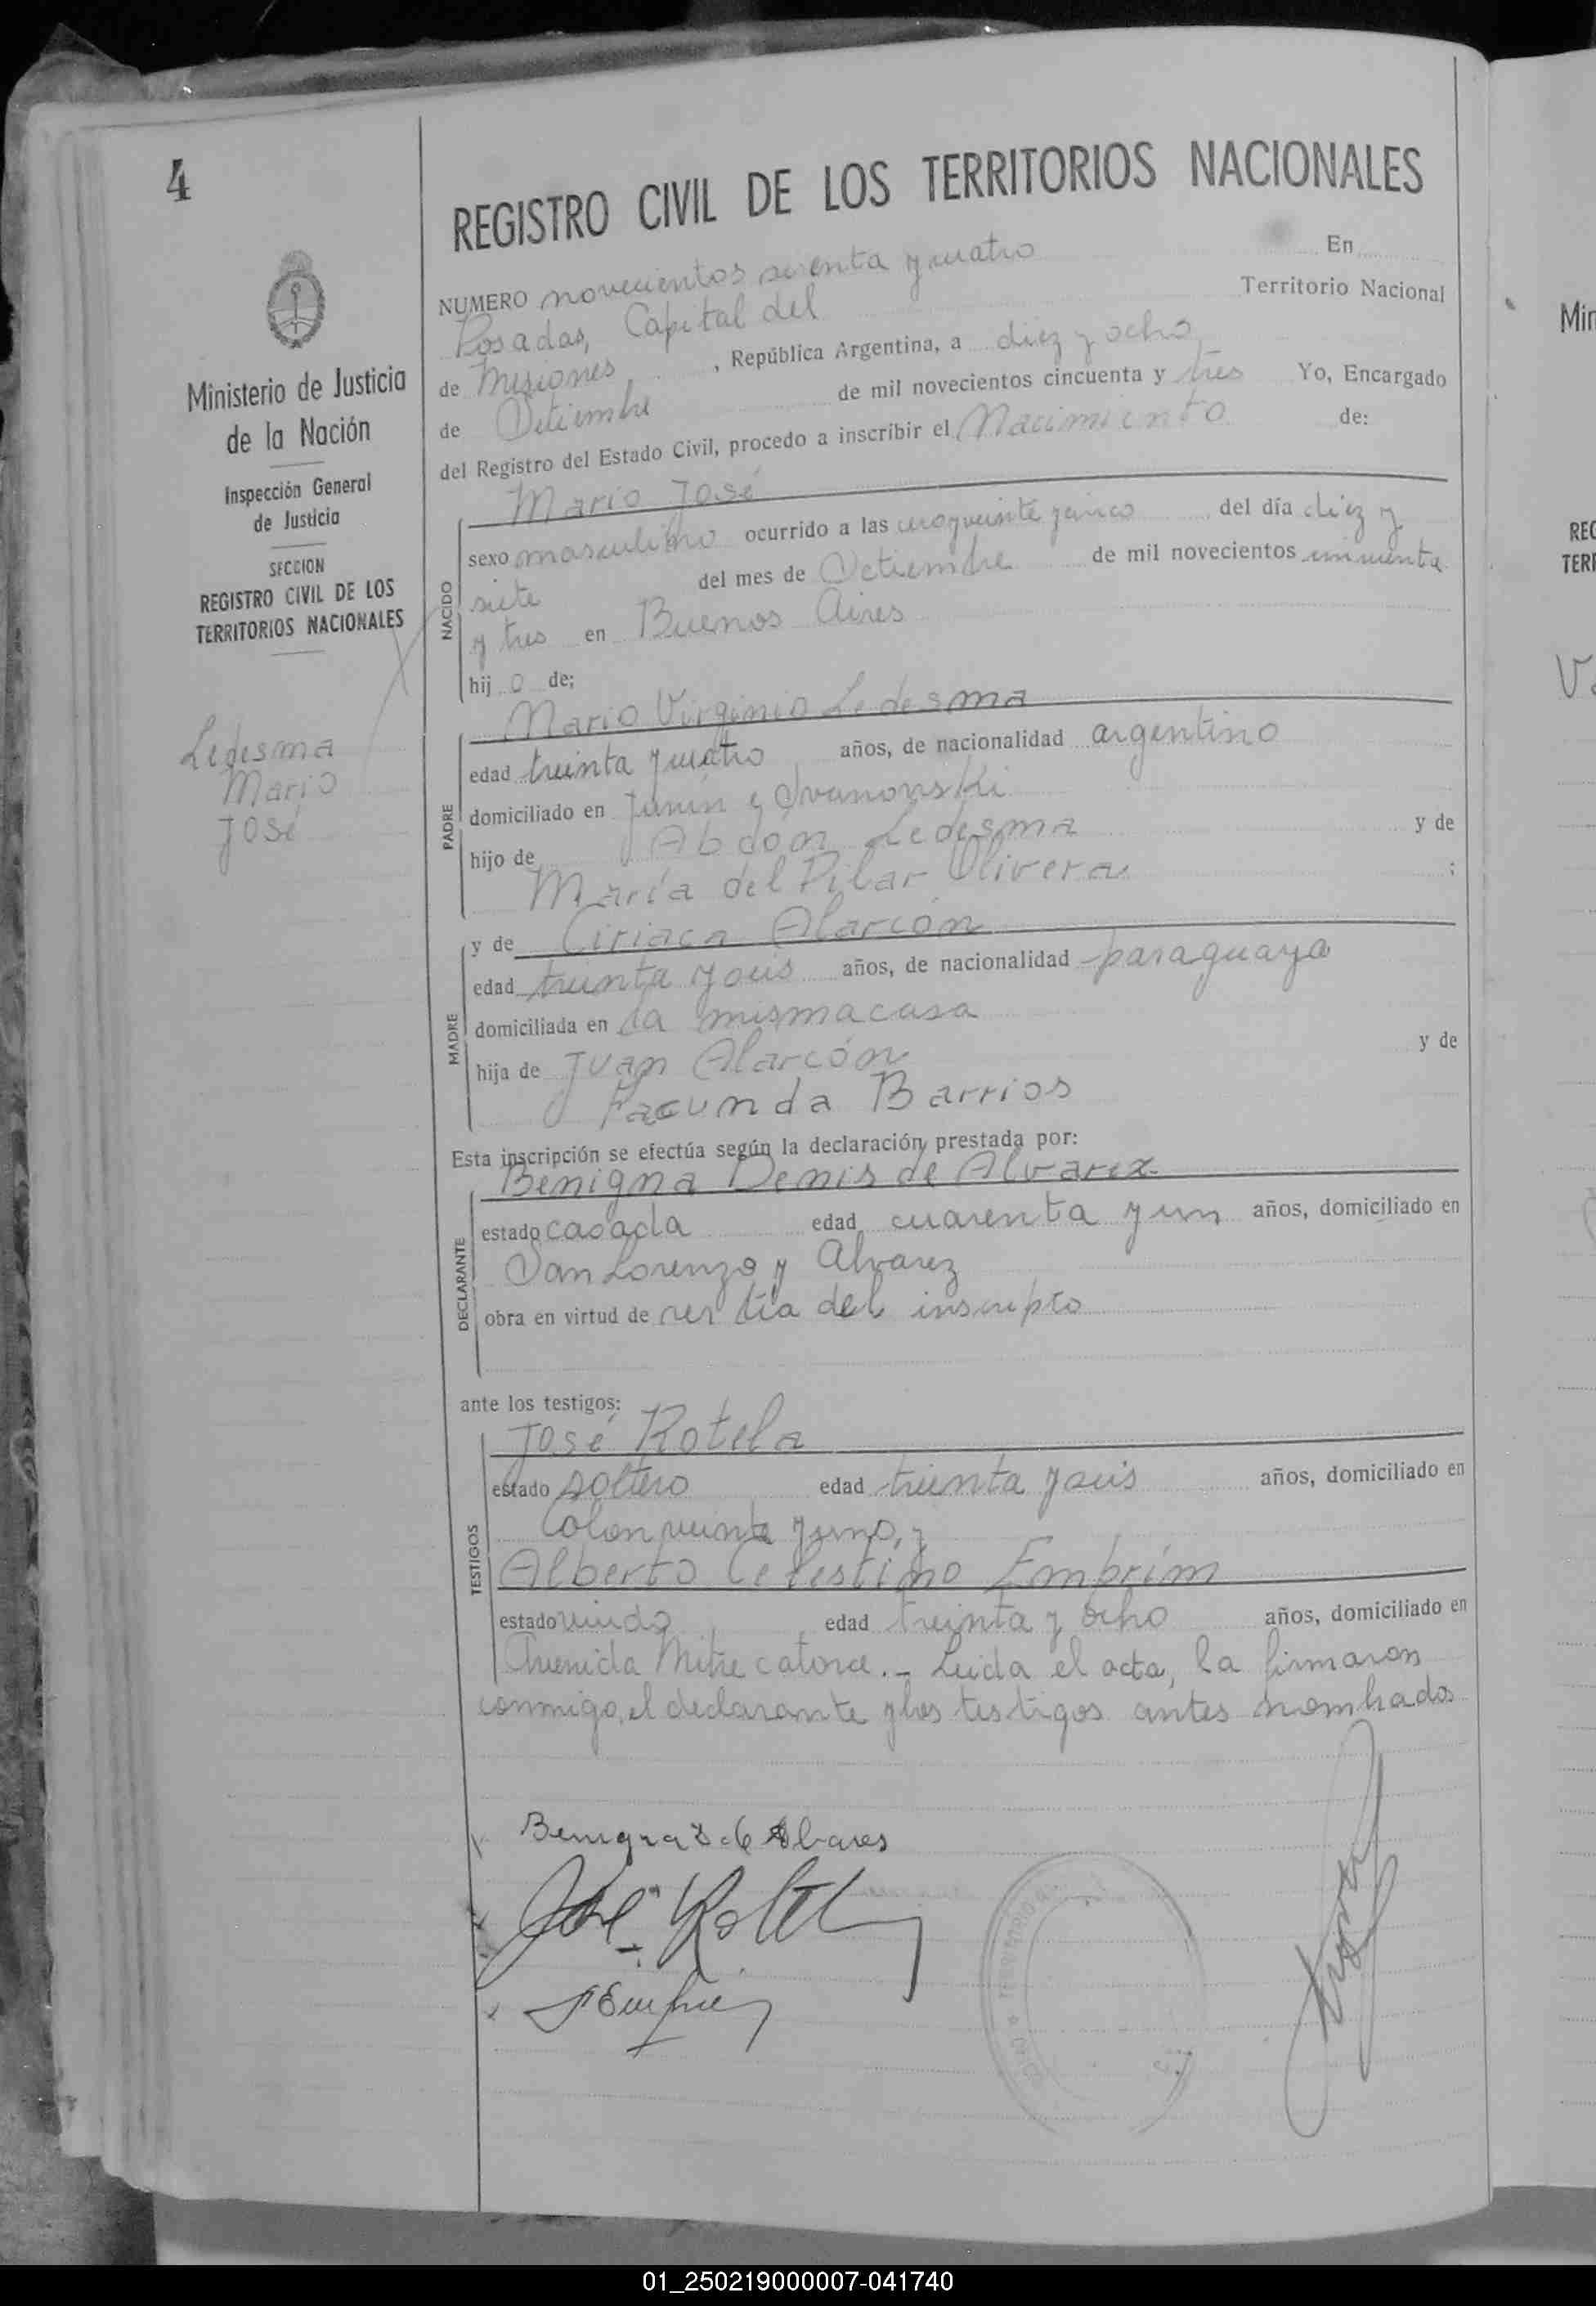 4
REGISTRO CIVIL DE LOS TERRITORIOS NACIONALES
Ministerio de Justicia
de la Nación
Inspección General
de Justicia
SECCION
REGISTRO CIVIL DE LOS
TERRITORIOS NACIONALES
Ledesma
Mario
José
NUMERO novecientos y cuatro En
Posadas, Capital del Territorio Nacional
de Misiones , República Argentina, a diez y ocho
de Setiembre de mil novecientos cincuenta y tres Yo, Encargado
del Registro del Estado Civil, procedo a inscribir el Nacimiento de:
NACIDO
Mario José
sexo masculino ocurrido a las cero y veinte y cinco del día diez y
siete del mes de Setiembre de mil novecientos cincuenta
y tres en Buenos Aires
hij o de;
PADRE
Mario Virginio Ledesma
edad treinta y cuatro años, de nacionalidad argentino
domiciliado en Junín y
hijo de Abdón Ledesma y de
María del Pilar Olivera ;
MADRE
y de Ciriaca Alarcón
edad treinta y seis años, de nacionalidad paraguaya
domiciliada en la misma casa
hija de Juan Alarcón y de
Facunda Barrios
Esta inscripción se efectúa según la declaración prestada por:
DECLARANTE
Benigna Denis de Alvarez
estado casada edad cuarenta y un años, domiciliado en
San Lorenzo y Alvarez
obra en virtud de ser tia del inscripto
ante los testigos:
TESTIGOS
José Rotela
estado soltero edad treinta y seis años, domiciliado en
Colon veinte y uno, y
Alberto Celestino Emprim
estado viudo edad treinta y ocho años, domiciliado en
Avenida Mitre catorce.- Leida el acta, la firmaron
conmigo, el declarante y los testigos antes nombrados
Benigna D de Albares
José Rotela
Min
REG
TERR
01_250219000007-041740